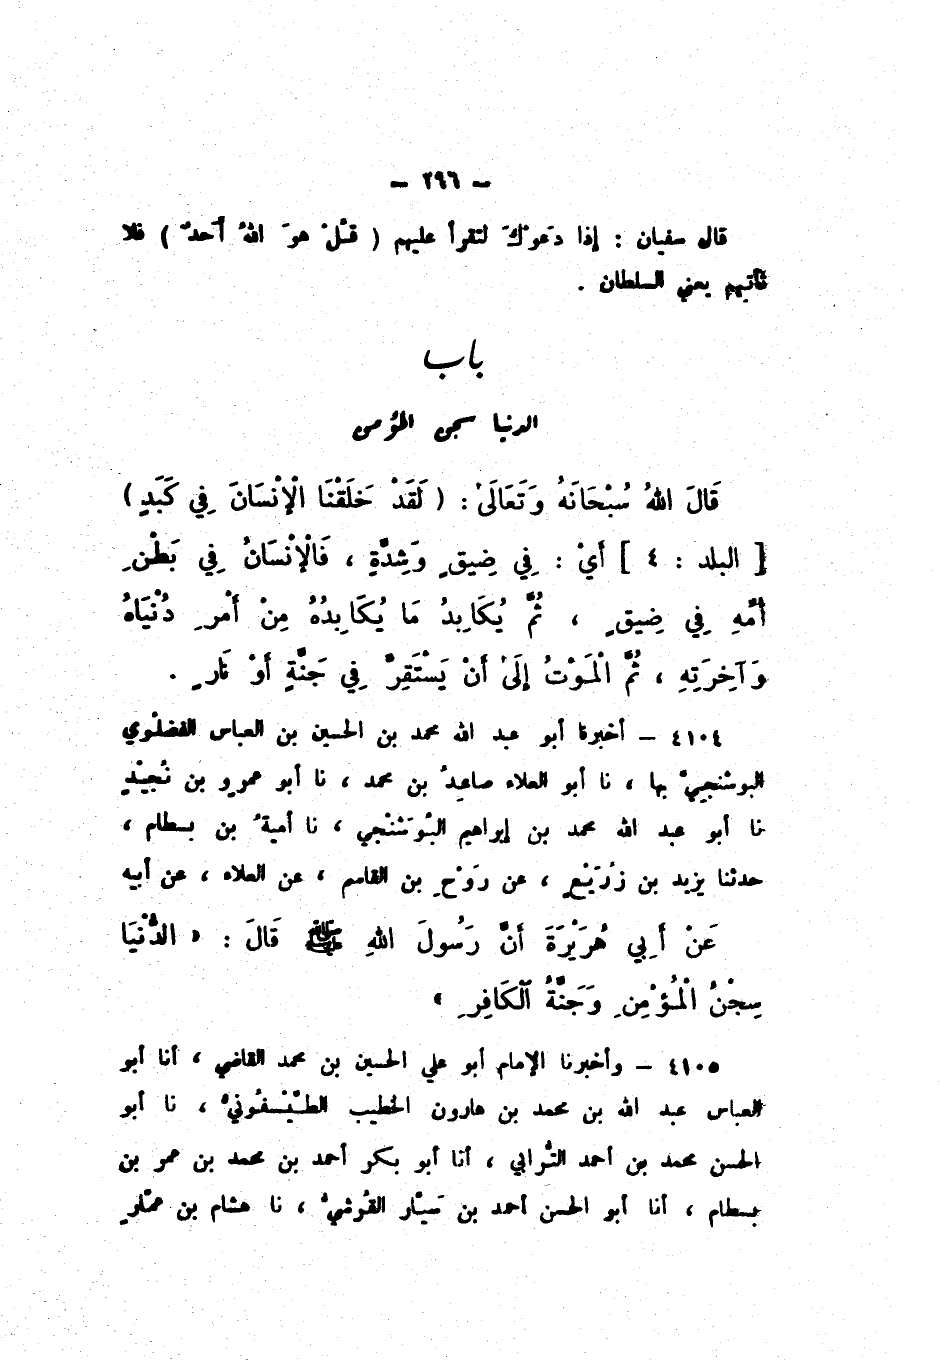 — ٢٩٦ —
قال سفيان : إذا دَعَوْكَ لتقرأ عليهم ( قُلْ هوَ اللهُ أَحدٌ ) فلا
تأتهم يعني السلطان .
باب
الدنيا سجن المؤمن
قَالَ اللهُ سُبْحَانَهُ وَتَعَالَىٰ : ( لَقَدْ خَلَقْنَا الْإِنْسَانَ فِي كَبَدٍ )
[ البلد : ٤ ] أَيْ : فِي ضِيقٍ وَشِدَّةٍ ، فَالْإِنْسَانُ فِي بَطْنِ
أُمِّهِ فِي ضِيقٍ ، ثُمَّ يُكَابِدُ مَا يُكَابِدُهُ مِنْ أَمْرِ دُنْيَاهُ
وَآخِرَتِهِ ، ثُمَّ الْمَوْتُ إِلَىٰ أَنْ يَسْتَقِرَّ فِي جَنَّةٍ أَوْ نَارٍ .
٤١٠٤ — أخبرنا أبو عبد الله محمد بن الحسين بن العباس الفَضْلَوي
البوسْنجيّ بها ، نا أبو العلاء صاعِدُ بن محمد ، نا أبو عمرو بن نُجَيْدٍ
نا أبو عبد الله محمد بن إبراهيم البُوَشَنْجي ، نا أميةُ بن بسطام ،
حدثنا يزيد بن زُرَيْعٍ ، عن رَوْحِ بن القاسم ، عن العلاء ، عن أبيه
عَنْ أَبِي هُرَيْرَةَ أَنَّ رَسُولَ اللهِ ﷺ قَالَ : « الدُّنْيَا
سِجْنُ الْمُؤْمِنِ وَجَنَّةُ الْكَافِرِ »
٤١٠٥ — وأخبرنا الإمام أبو علي الحسين بن محمد القاضي ، أنا أبو
العباس عبد الله بن محمد بن هارون الخطيب الطَّيْسَفُونيُّ ، نا أبو
الحسن محمد بن أحمد التُّرابي ، أنا أبو بكر أحمد بن محمد بن عمر بن
بسطام ، أنا أبو الحسن أحمد بن سَيّار القُرشيُّ ، نا هشام بن عمّارٍ